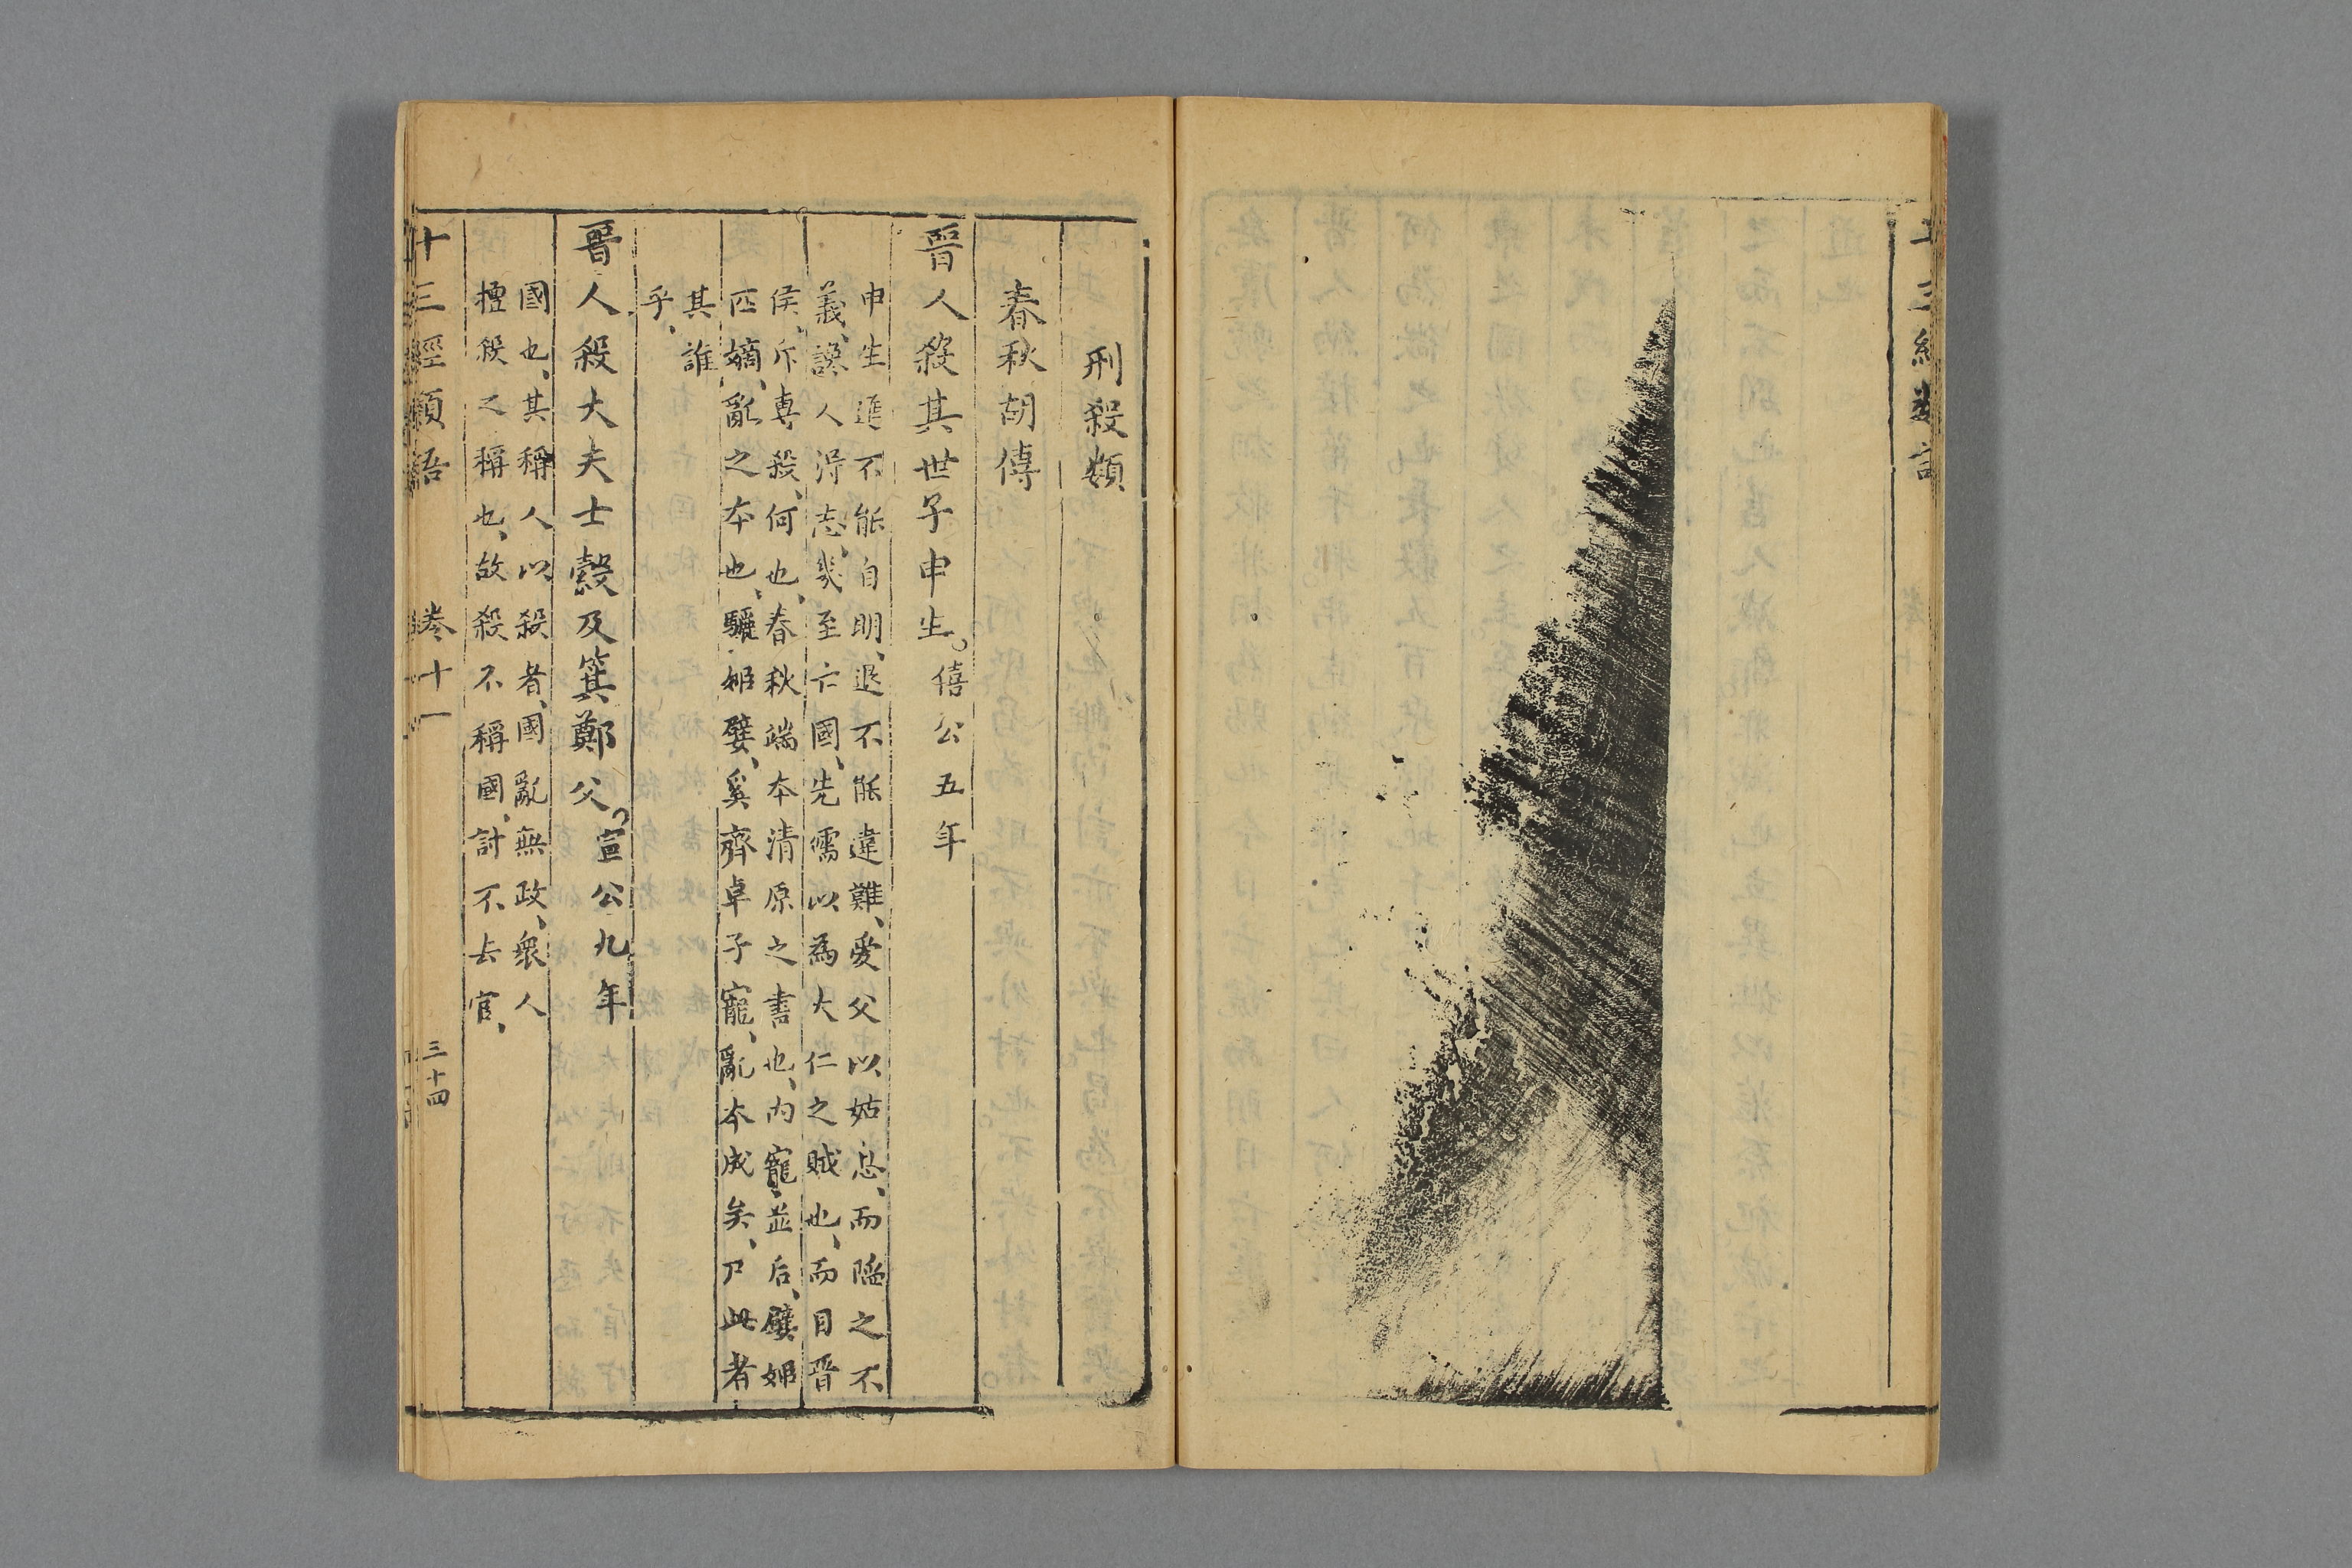 刑殺類
春秋胡傳
晉人殺其世子申生。僖公五年
申生進不能自明、退不能違難、愛父以姑息、而陷之不
義、讒人得志、幾至亡國、先儒以為大仁之賊也、而目晉
侯、斥專殺、何也、春秋端本清原之書也、內寵並后、嬖姬
匹嫡、亂之本也、驪姬嬖、奚齊卓子寵、亂本成矣、尸此者
其誰
乎、
晉人殺大夫士縠及箕鄭父。宣公九年
國也、其稱人以殺者、國亂無政、衆人
擅殺之稱也、故殺不稱國、討不去官、
十三經類語 卷十一 三十四